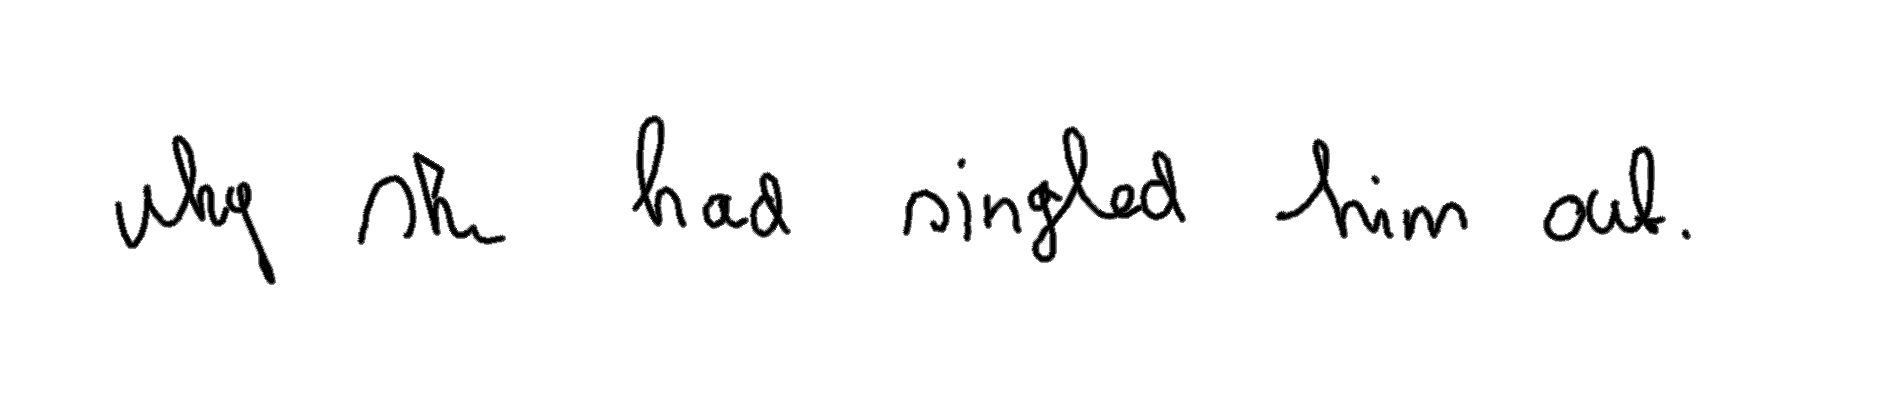 why she had singled him out.